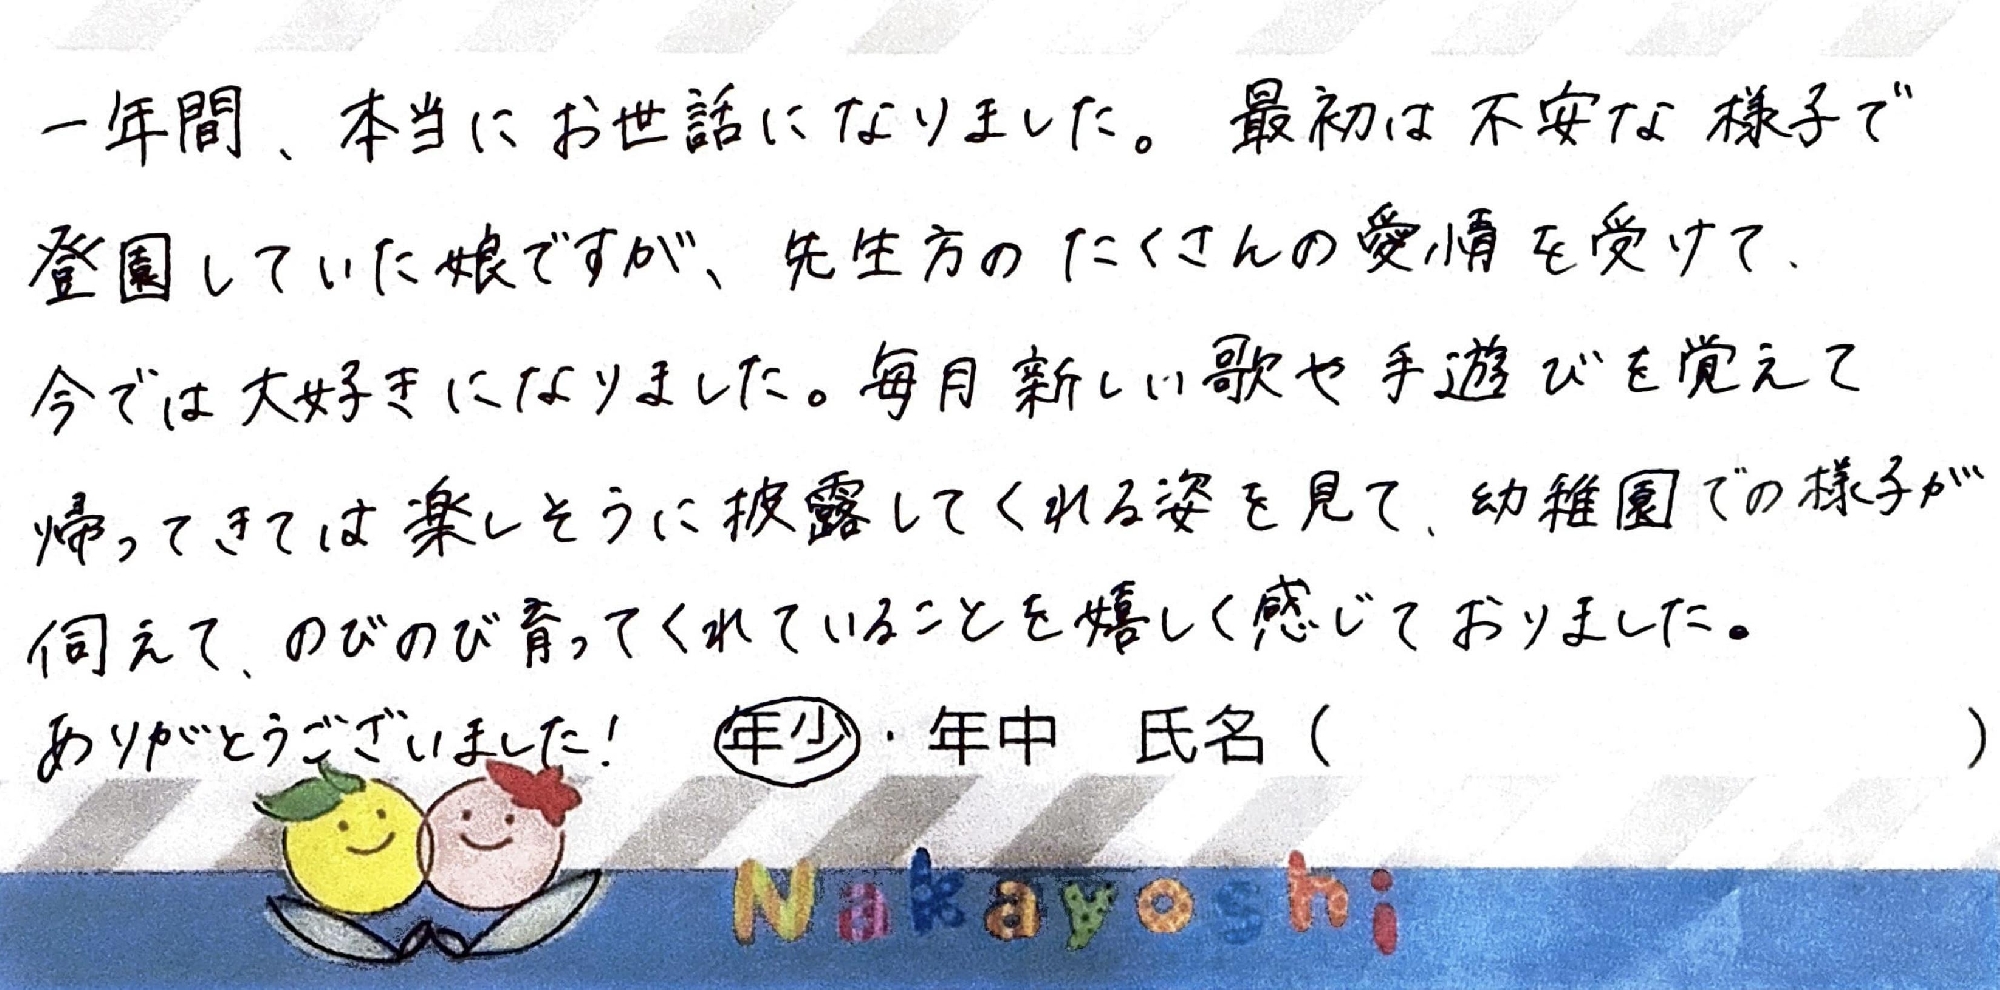 一年間、本当にお世話になりました。最初は不安な様子で
登園していた娘ですが、先生方のたくさんの愛情を受けて、
今では大好きになりました。毎月新しい歌や手遊びを覚えて
帰ってきては楽しそうに披露してくれる姿を見て、幼稚園での様子が
伺えて、のびのび育ってくれていることを嬉しく感じておりました。
ありがとうございました! 年少・年中 氏名( )
Nakayoshi